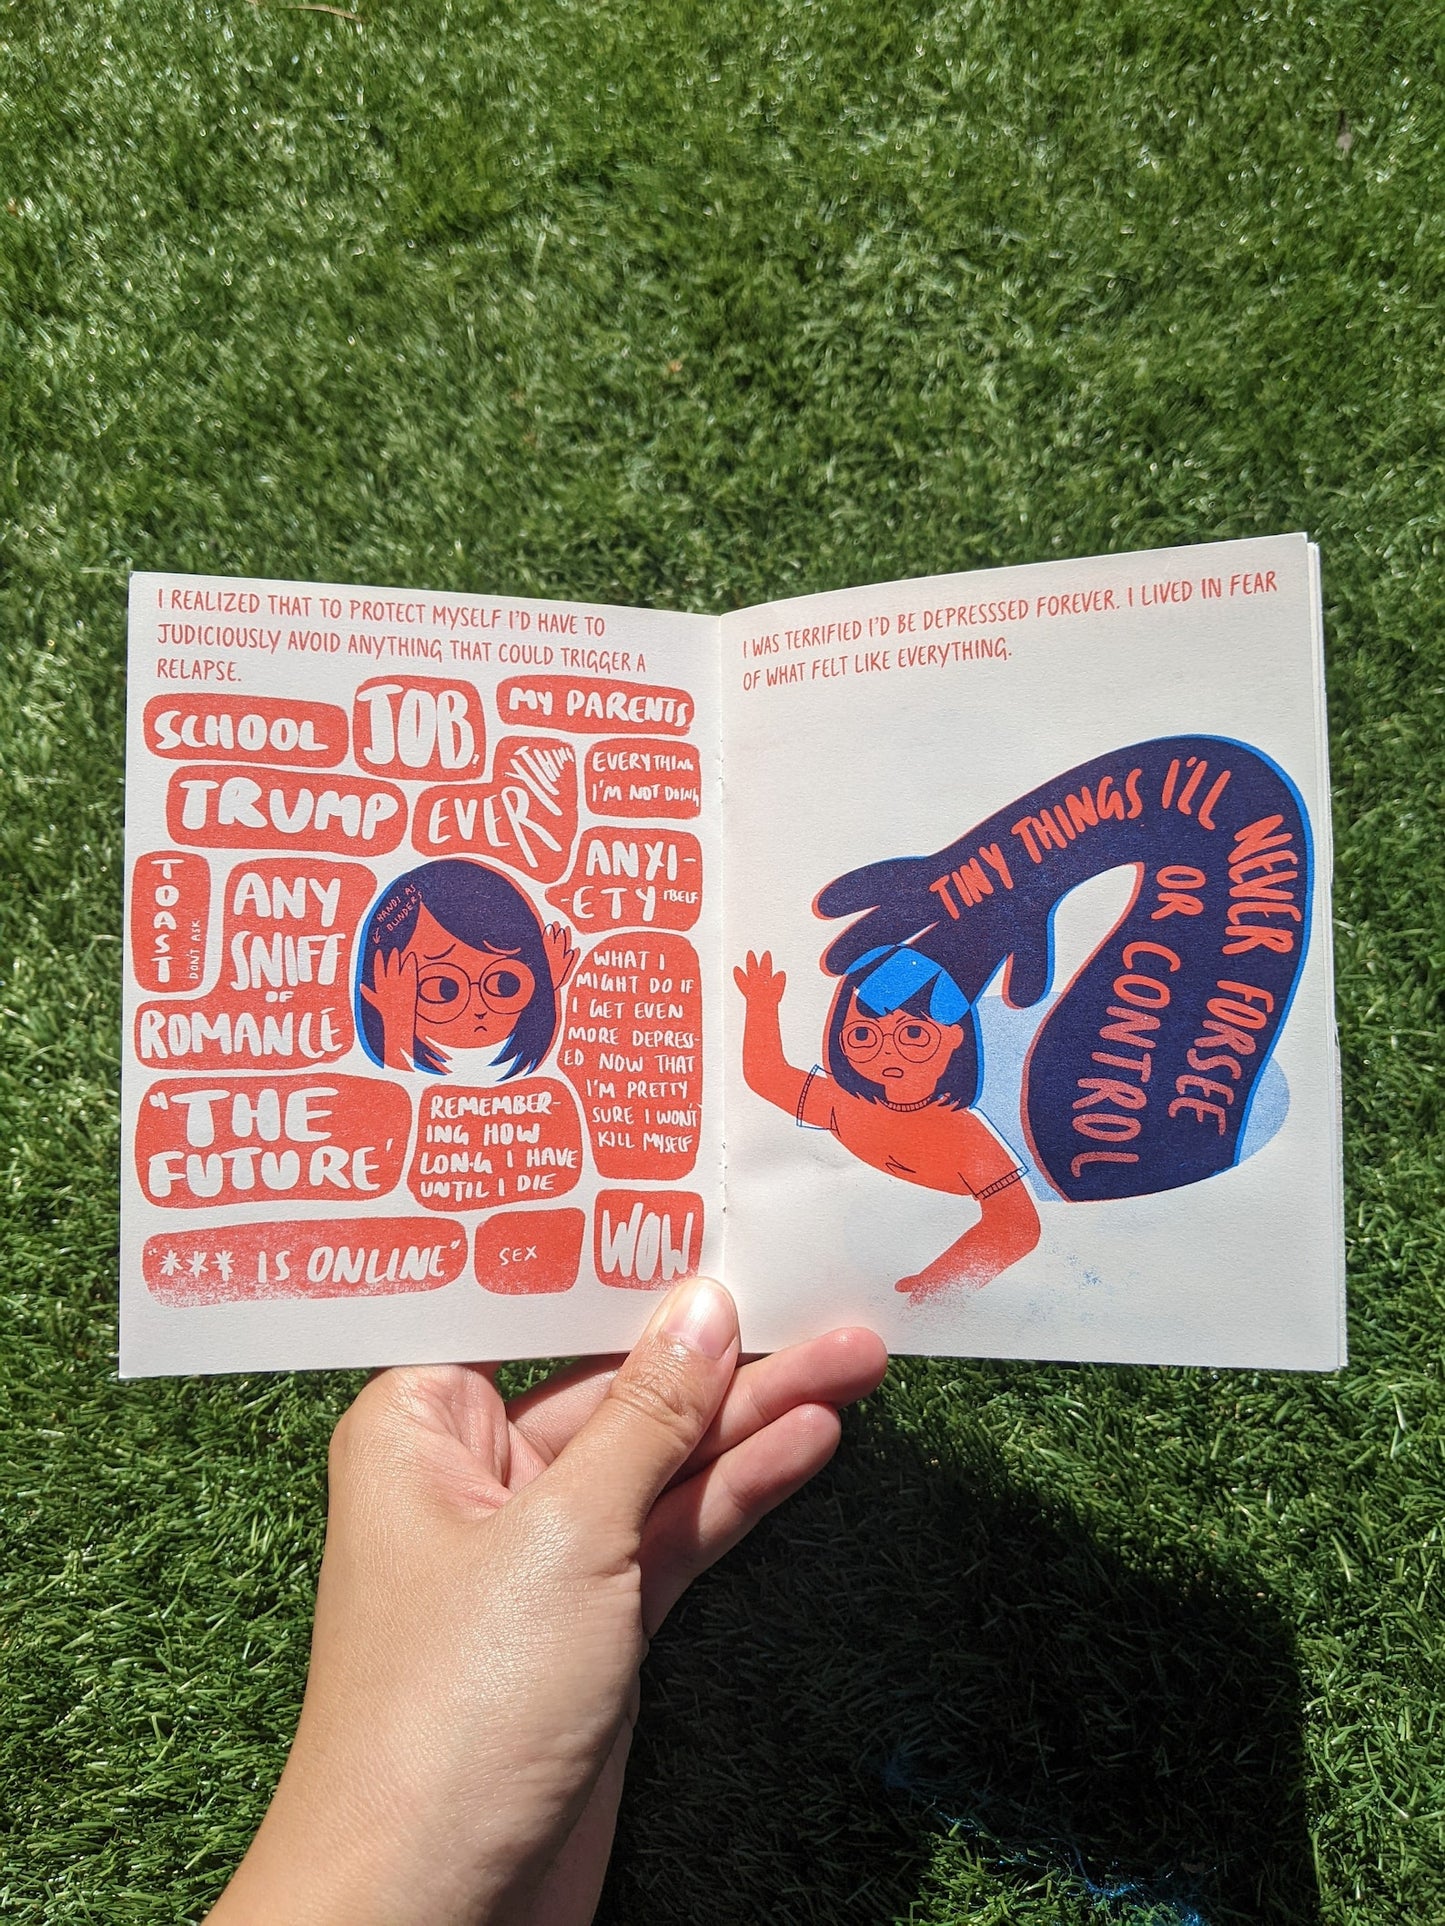 I REALIZED THAT TO PROTECT MYSELF I'D HAVE TO
JUDICIOUSLY AVOID ANYTHING THAT COULD TRIGGER A
RELAPSE.
SCHOOL
JOB.
MY PARENTS
TRUMP
EVERYTHING
EVERYTHING
I'M NOT DOING
TOAST
DON'T ASK
ANY
SNIFF
OF
ROMANCE
HANDS AS
BLINDERS
ANXI-
-ETY ITSELF
WHAT I
MIGHT DO IF
I GET EVEN
MORE DEPRESS-
ED NOW THAT
I'M PRETTY
SURE I WON'T
KILL MYSELF
"THE
FUTURE'
REMEMBER-
ING HOW
LONG I HAVE
UNTIL I DIE
"*** IS ONLINE"
SEX
WOW
I WAS TERRIFIED I'D BE DEPRESSSED FOREVER. I LIVED IN FEAR
OF WHAT FELT LIKE EVERYTHING.
TINY THINGS I'LL NEVER FORSEE
OR CONTROL